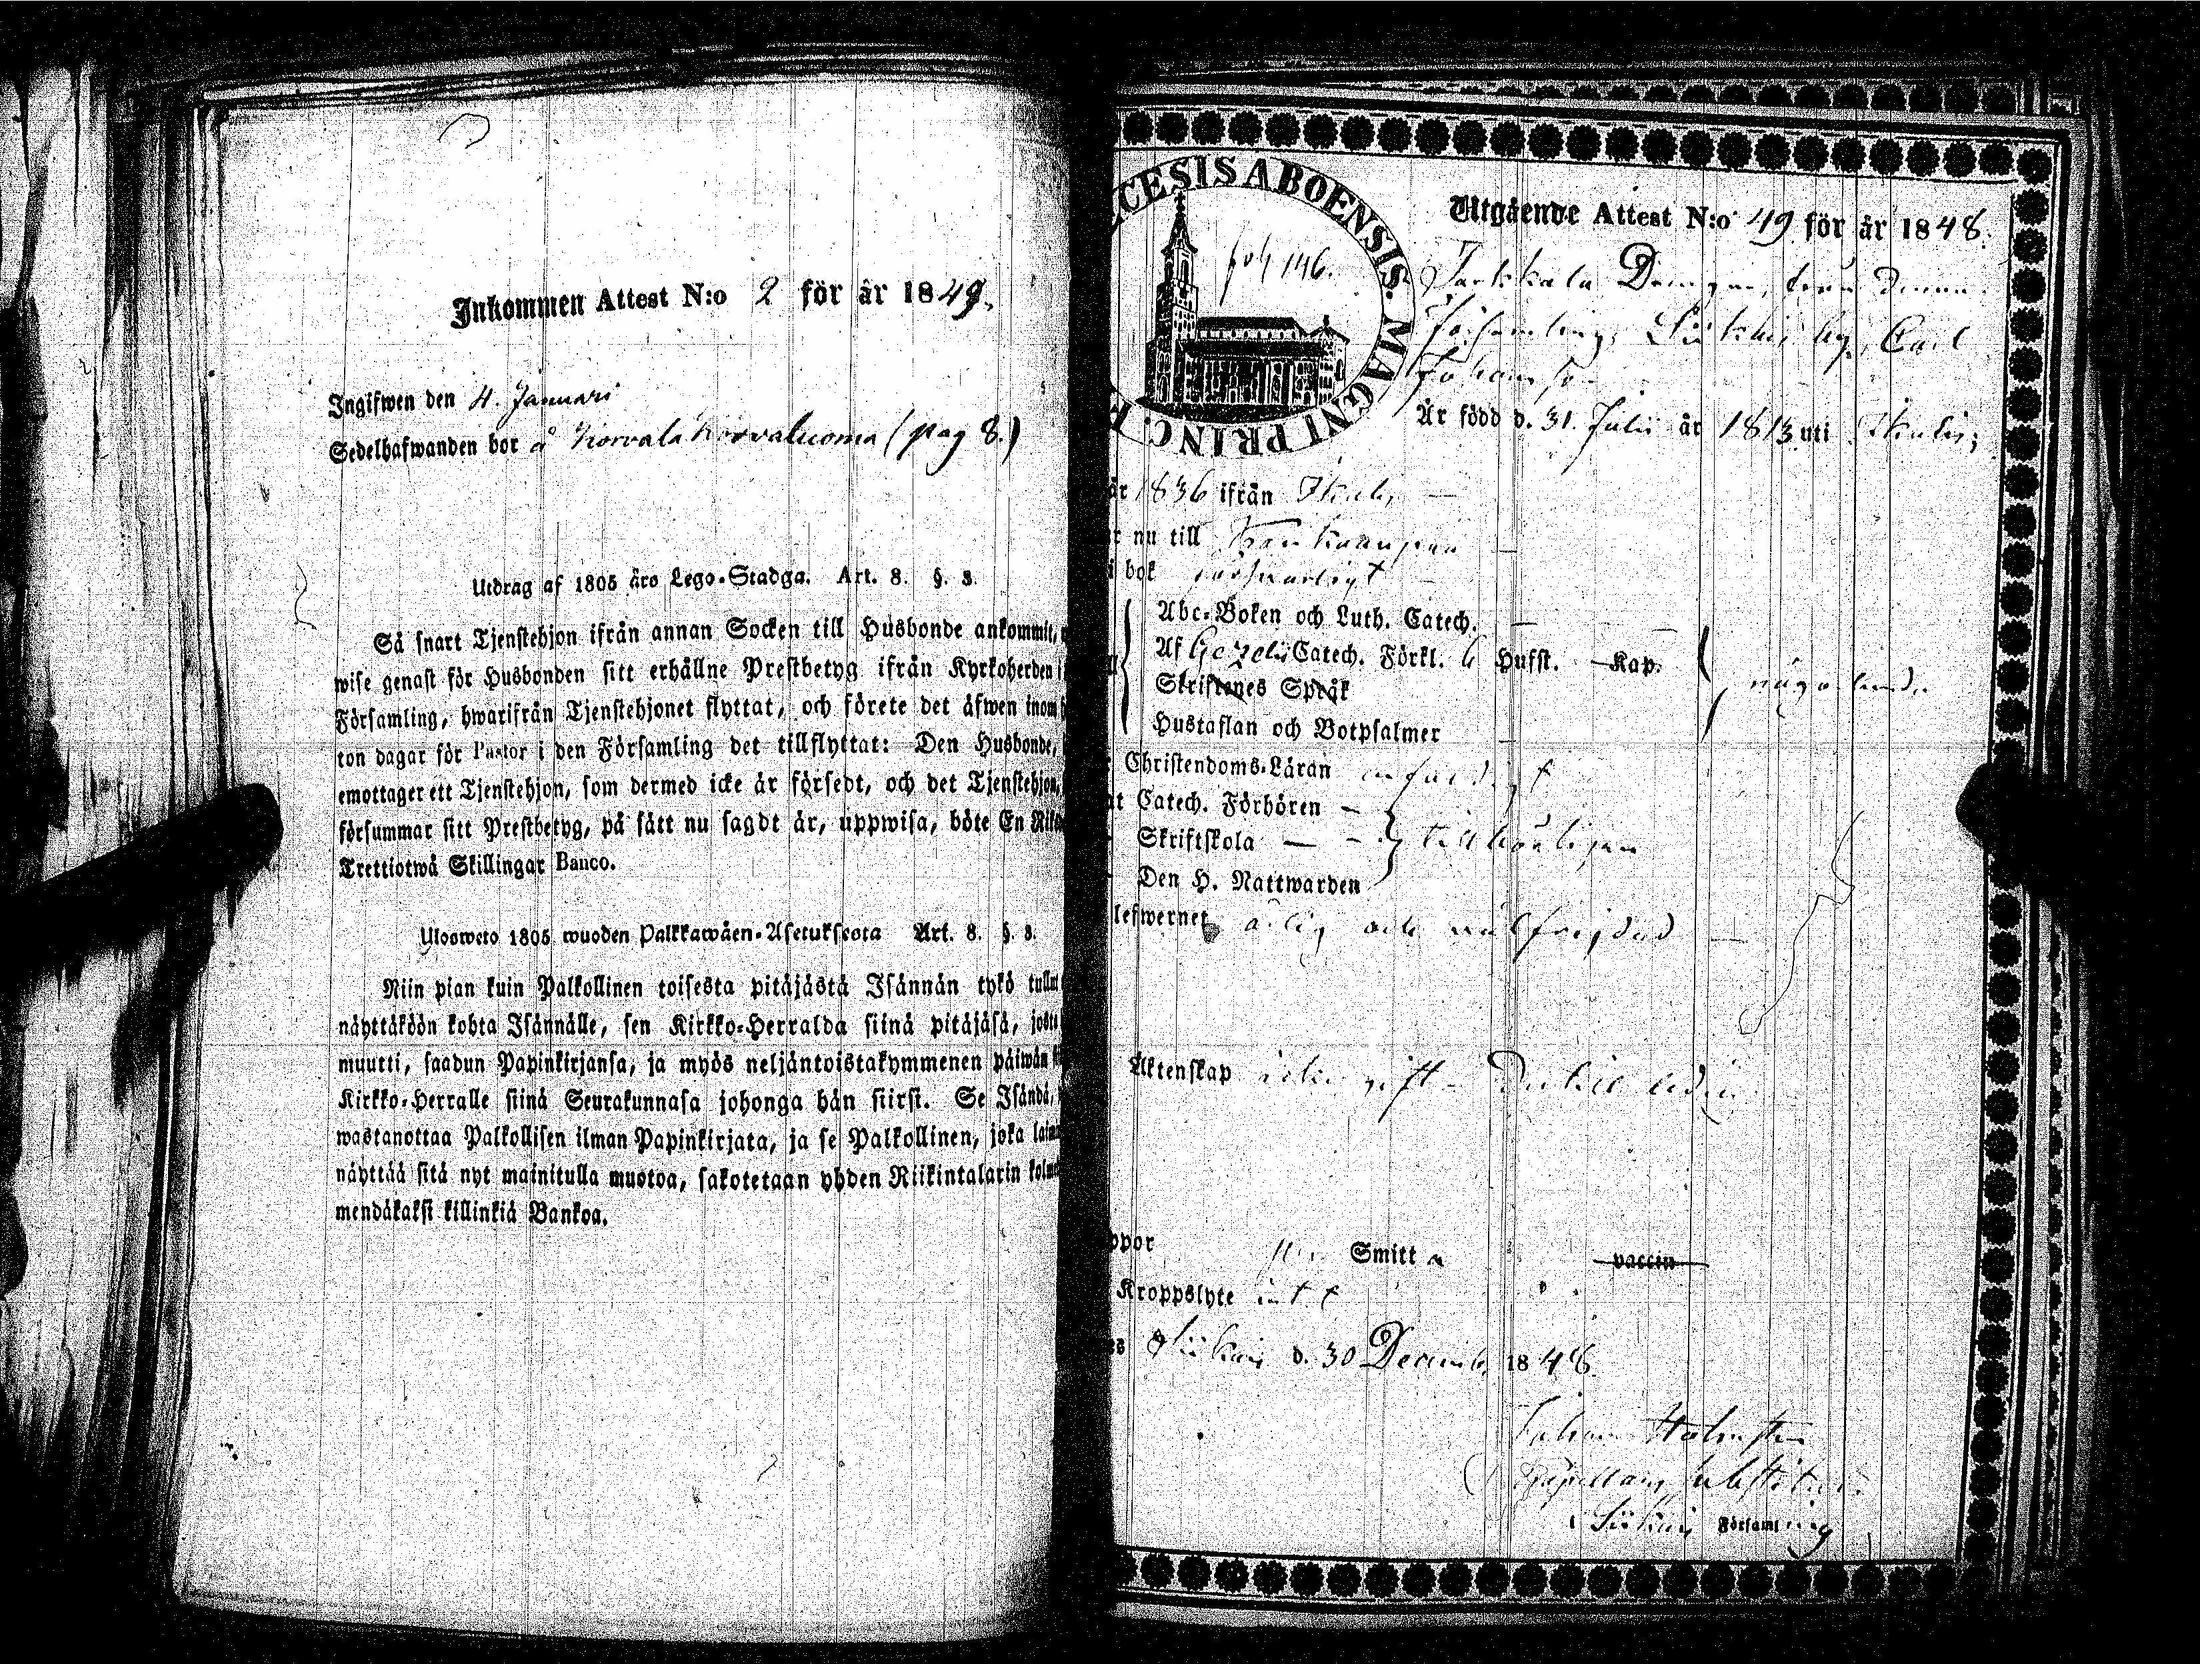 Inkommen Attest N:o 2 för år 1849.
Ingifwen den 4. Januari
Sedelhafwanden bor å Korvala Korvaluoma (pag 8.)
Utdrag af 1805 års Lego-Stadga. Art. 8. §. 3.
Så snart Tjenstehjon ifrån annan Socken till Husbonde ankommit,
wise genast för Husbonden sitt erhållne Prestbetyg ifrån Kyrkoherden i
Församling, hwarifrån Tjenstehjonet flyttat, och förete det äfwen inom
ton dagar för Pastor i den Församling det tillflyttat: Den Husbonde,
emottager ett Tjenstehjon, som dermed icke är försedt, och det Tjenstehjon,
försummar sitt Prestbetyg, på sätt nu sagdt är, uppwisa, böte En
Trettiotwå Skillingar Banco.
Ulosweto 1805 wuoden Palkkawäen-Asetuksesta Art. 8. §. 3.
Niin pian kuin Palkollinen toisesta pitäjästä Isännän tykö
näyttäköön kohta Isännälle, sen Kirkko-Herralda siinä pitäjäsä,
muutti, saadun Papinkirjansa, ja myös neljäntoistakymmenen päiwän
Kirkko-Herralle siinä Seurakunnasa johonga hän siirsi. Se Isändä,
wastanottaa Palkollisen ilman Papinkirjata, ja se Palkollinen, joka
näyttää sitä nyt mainitulla muotoa, sakotetaan yhden Riikintalarin
mendäkaksi killinkiä Bankoa.
CESIS ABOENSIS. MAGNI PRINC. F
fol 146.
Utgående Attest N:o 49 för år 1848.
Drengen, från denna
Församlings Siikais by, Carl
Johansson
Är född d. 31. Julii år 1813 uti Ikalis;
år 1836 ifrån Ikalis
r nu till Kankaanpää
i bok försvarligt
Abc-Boken och Luth. Catech.
Af Gezelii Catech. Förkl. 6 Hufst. Kap.
Skriftenes Språk
någorlunda
Hustaflan och Botpsalmer
Christendoms-Läran enfaldigt
at Catech. Förhören
Skriftskola tillbörligen
Den H. Nattwarden
lefwernet ärlig och välfrejdad
Äktenskap Till ledig
ppor Smitt vaccin
Kroppslyte intet
es Siikais d. 30 Decemb. 1848.
Johan Holmsten
Capellans substitut i
Siikais Församling